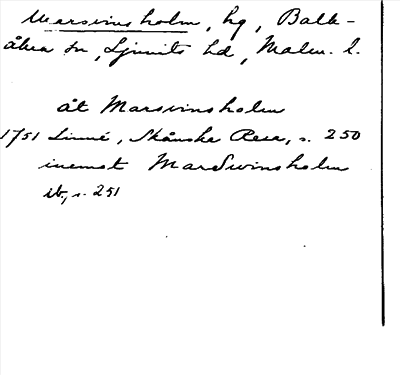 Marsvinsholm, hg, Balk-
åkra sn, Ljunits hd, Malm. l.
åt Marsvinsholm
1751 Linné, Skånske Resa, s. 250
inemot MarSwinsholm
ib., s. 251